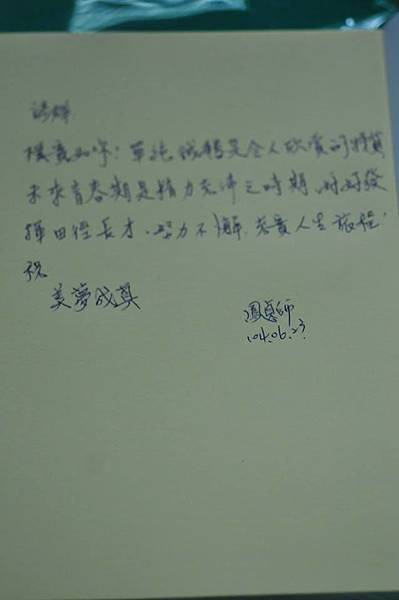 樸實如字！單純誠懇是令人欣賞的特質
未來青春期是精力充沛之時期，好好發
揮田徑長才，努力不懈，充實人生旅程！
祝
美夢成真
鳳恩師
104.06.23